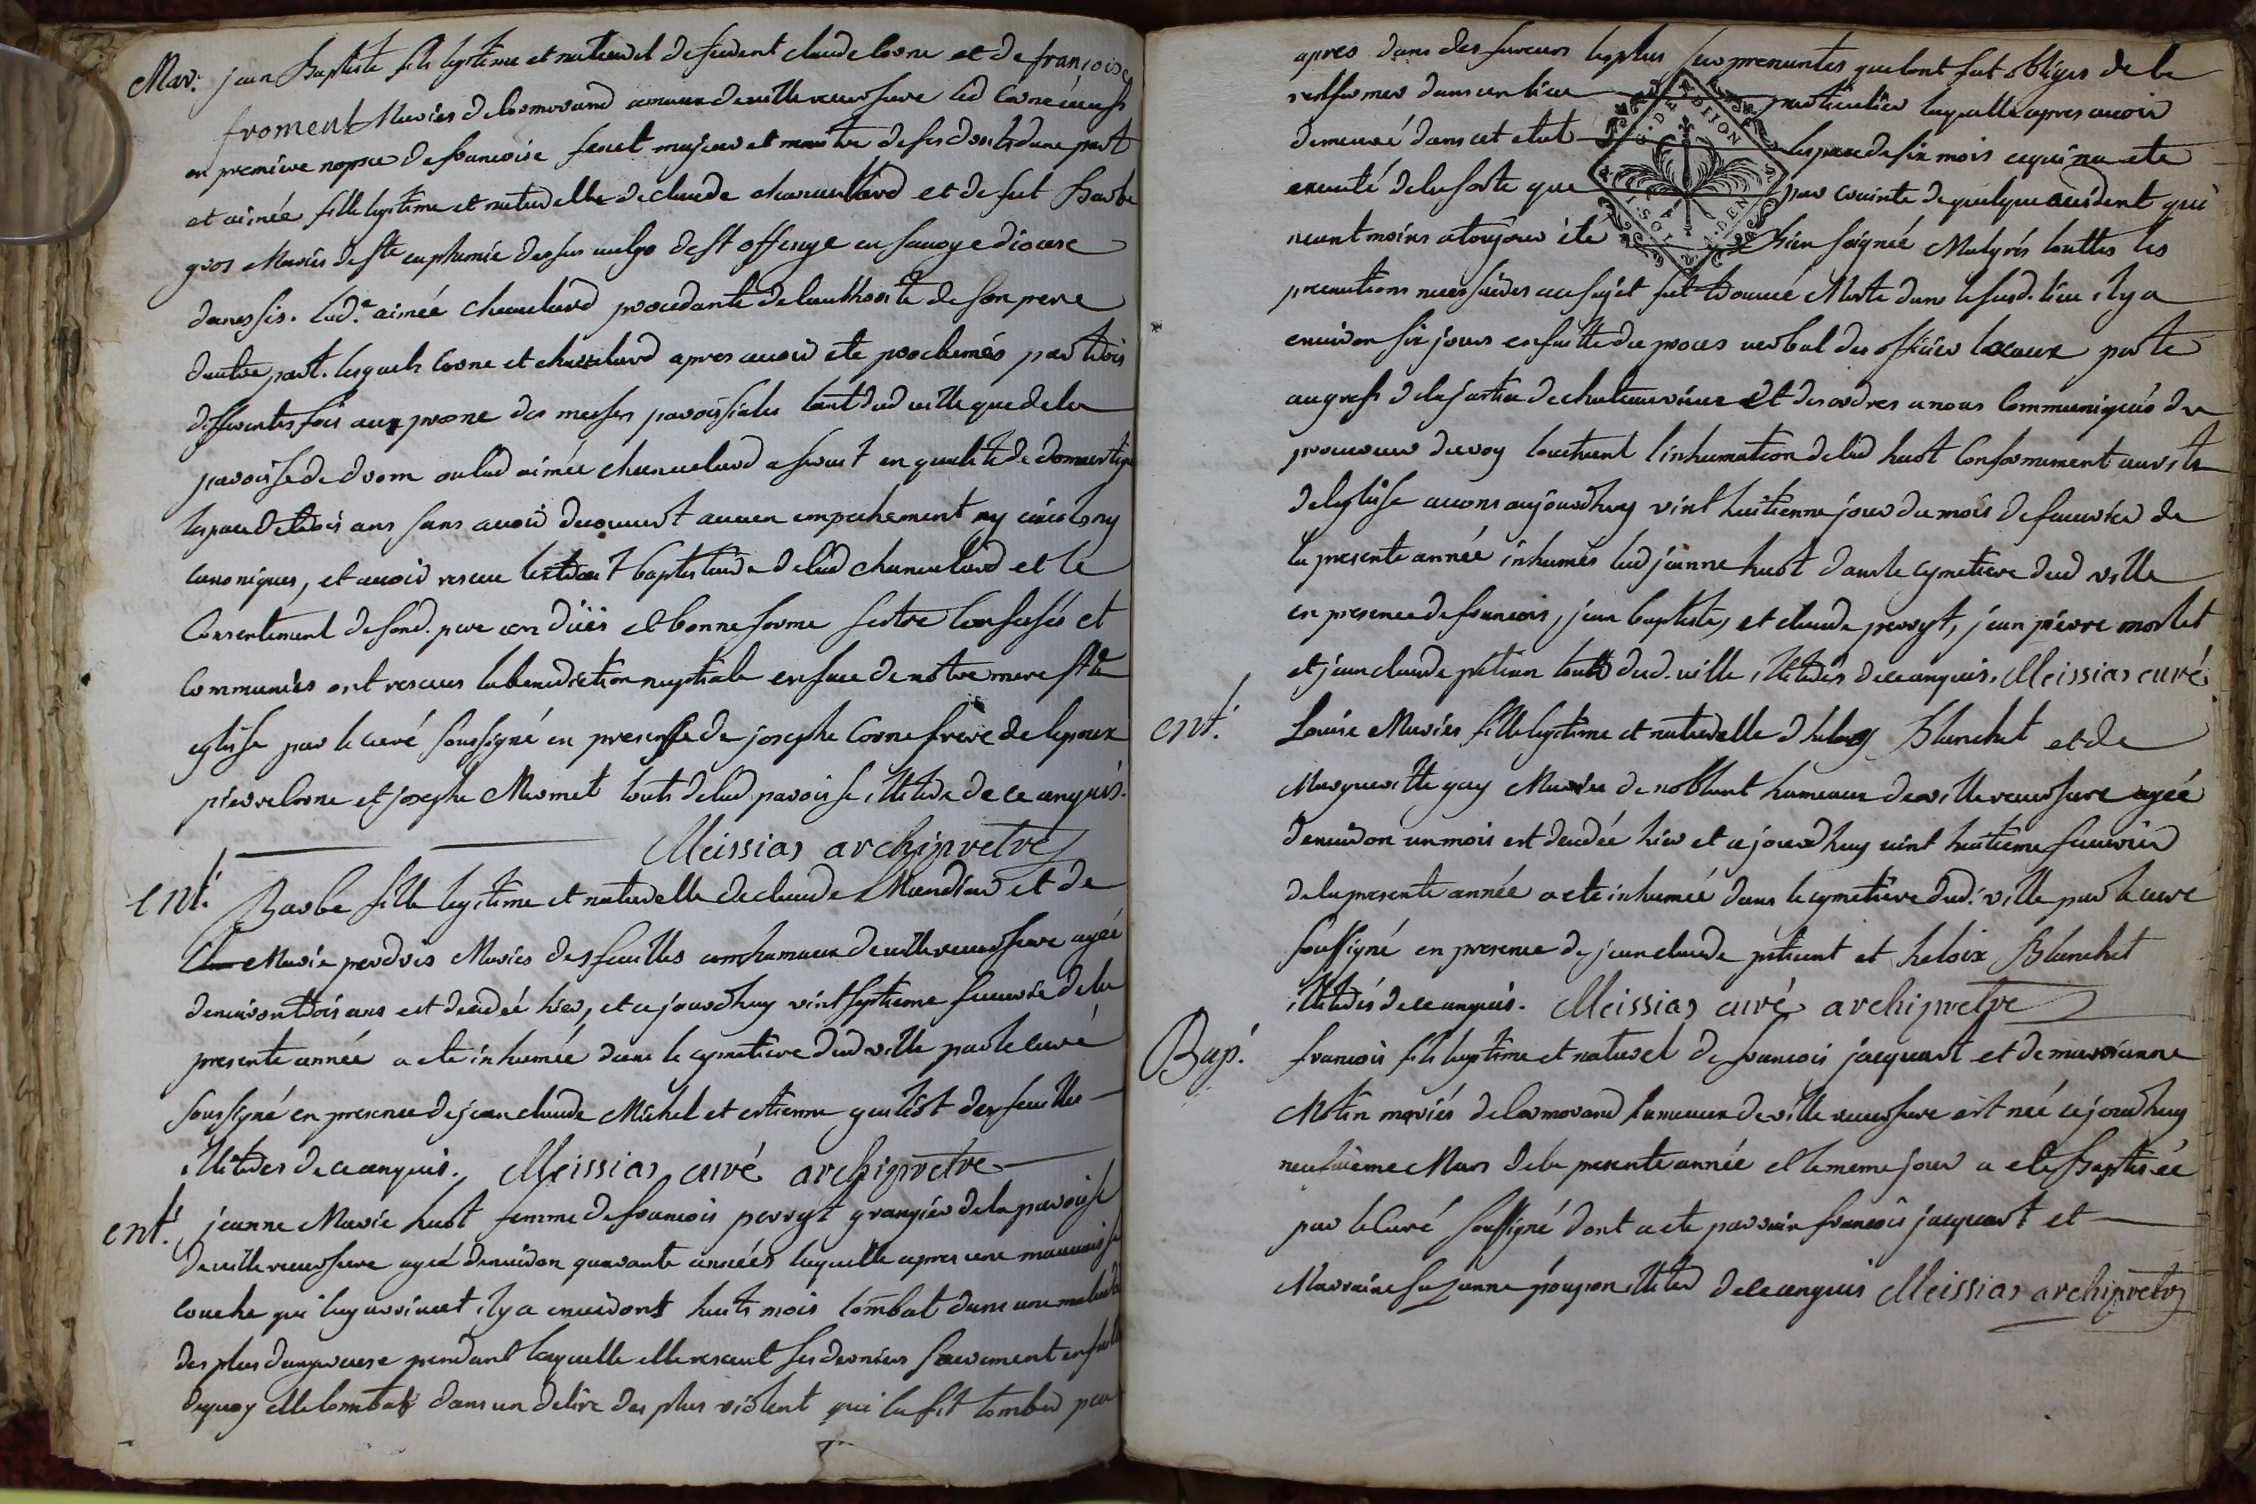 Mar. jean Baptiste fils legitime et naturel de feu dent claude Corne et de francoise
froment Maries de Cormorand amaux de ville reversure led Corne veuf
en premiere nopce de francoise feuet majeur et maitre de ses droits dune part
et aimée fille legitime et naturelle de claude chavulard et de feue Barbe
gros Maries de ste euphemie dessus de st offenge en savoye diocese
danessis. lad.e aimée Chavulard procedante de lauthorité de son pere
dautre part. lesquels Corne et chavulard apres avoir ete proclamés par trois
differentes fois aux prone des messes paroissiales tant dud ville que de la
paroisse de drom ou lad aimée chavulard a servit en qualité de domestique
lespace de trois ans sans avoir decouvert aucun empechement ny civils ny
canoniques, et avoir resceu lextrait baptistaire de lad chavulard et le
Consentement de sond. pere en düe et bonne forme s'etre confessés et
communiés ont resceus la benediction nuptiale en face de notre mere ste
eglise par le curé soussigné en presense de josephe Corne frere de lepoux
pierre Corne et josephe Mermet touts de lad paroisse illitere de ce enquis.
Meissias archipretre
ent. Barbe fille legitime et naturelle de claude Mandier et de
Marie perdrix Maries des feuilles hameau de ville reversure agée
denviron trois ans est decedée hier, et ce jourdhuy vint septieme fevrier de la
presente année a ete inhumée dans le cymetiere dud ville par le curé
soussigné en presence de jean claude Michel et estienne guillot des feuilles
illiteres de ce enquis. Meissias curé archipretre
ent. jeanne Marie huot femme de francois perryt grangier de la paroisse
de ville reversure agée denviron quarante années laquelle apres une mauvaise
couche qui luy arrivat il y a environt huits mois tombat dans une maladie
des plus dangereuse pendant laquelle elle resceut ses derniers sacrement ensuite
dequoy elle tombat dans un delire des plus violent qui la fit tomber peu
apres dans des fureurs les plus surprenantes quelont fut obliges de la
renfermer dans un lieu particulier laquelle apres avoir
demeuré dans cet etat lespace de six mois ce qui na ete
executé de la sorte que par crainte de quelque accident qui
neantmoins a toujour ete bien soignée Malgrés touttes les
precautions necessaires au sujet fut trouvé Morte dans le susd. lieu il y a
environ six jours ensuitte du proces verbal des officier locaux porté
au greff de la justice de chateauvieux et des ordres a nous Communiqués du
procureur du roy touchant l'inhumation de lad huot conformement au rits
de leglise avons aujourdhuy vint huitienne jour du mois de fevrier de
la presente année inhumés lad jeanne huot dans le cymetiere dud ville
en presence de francois, jean baptiste, et claude perryt, jean pierre morlet
et jean claude pitiun touts dud. ville, illiterés de ce enquis. Meissias curé
ent. Louise Maries fille legitime et naturelle d'heloy Blanchet et de
Margueritte guy Maries de noblant hameaux de ville reversure agée
denviron un mois est decedée hier et ce jourdhuy vint huitieme fevrier
de la presente année a ete inhumée dans le cymetiere dud. ville par le curé
soussigné en presence de jean claude pitiunt et heloix Blanchet
illiterés de ce enquis. Meissias curé archipretre
Bap. francois fils legitime et naturel de francois jacquart et de marrianne
Motin mariés de Cormorand hameaux de ville reversure est née ce jourdhuy
neufvieme Mars de la presente année et le meme jour a ete Baptisée
par le curé soussigné dont a ete parrain francois jacquart et
Marraine suzanne illiter de ce enquis Meissias archipretre